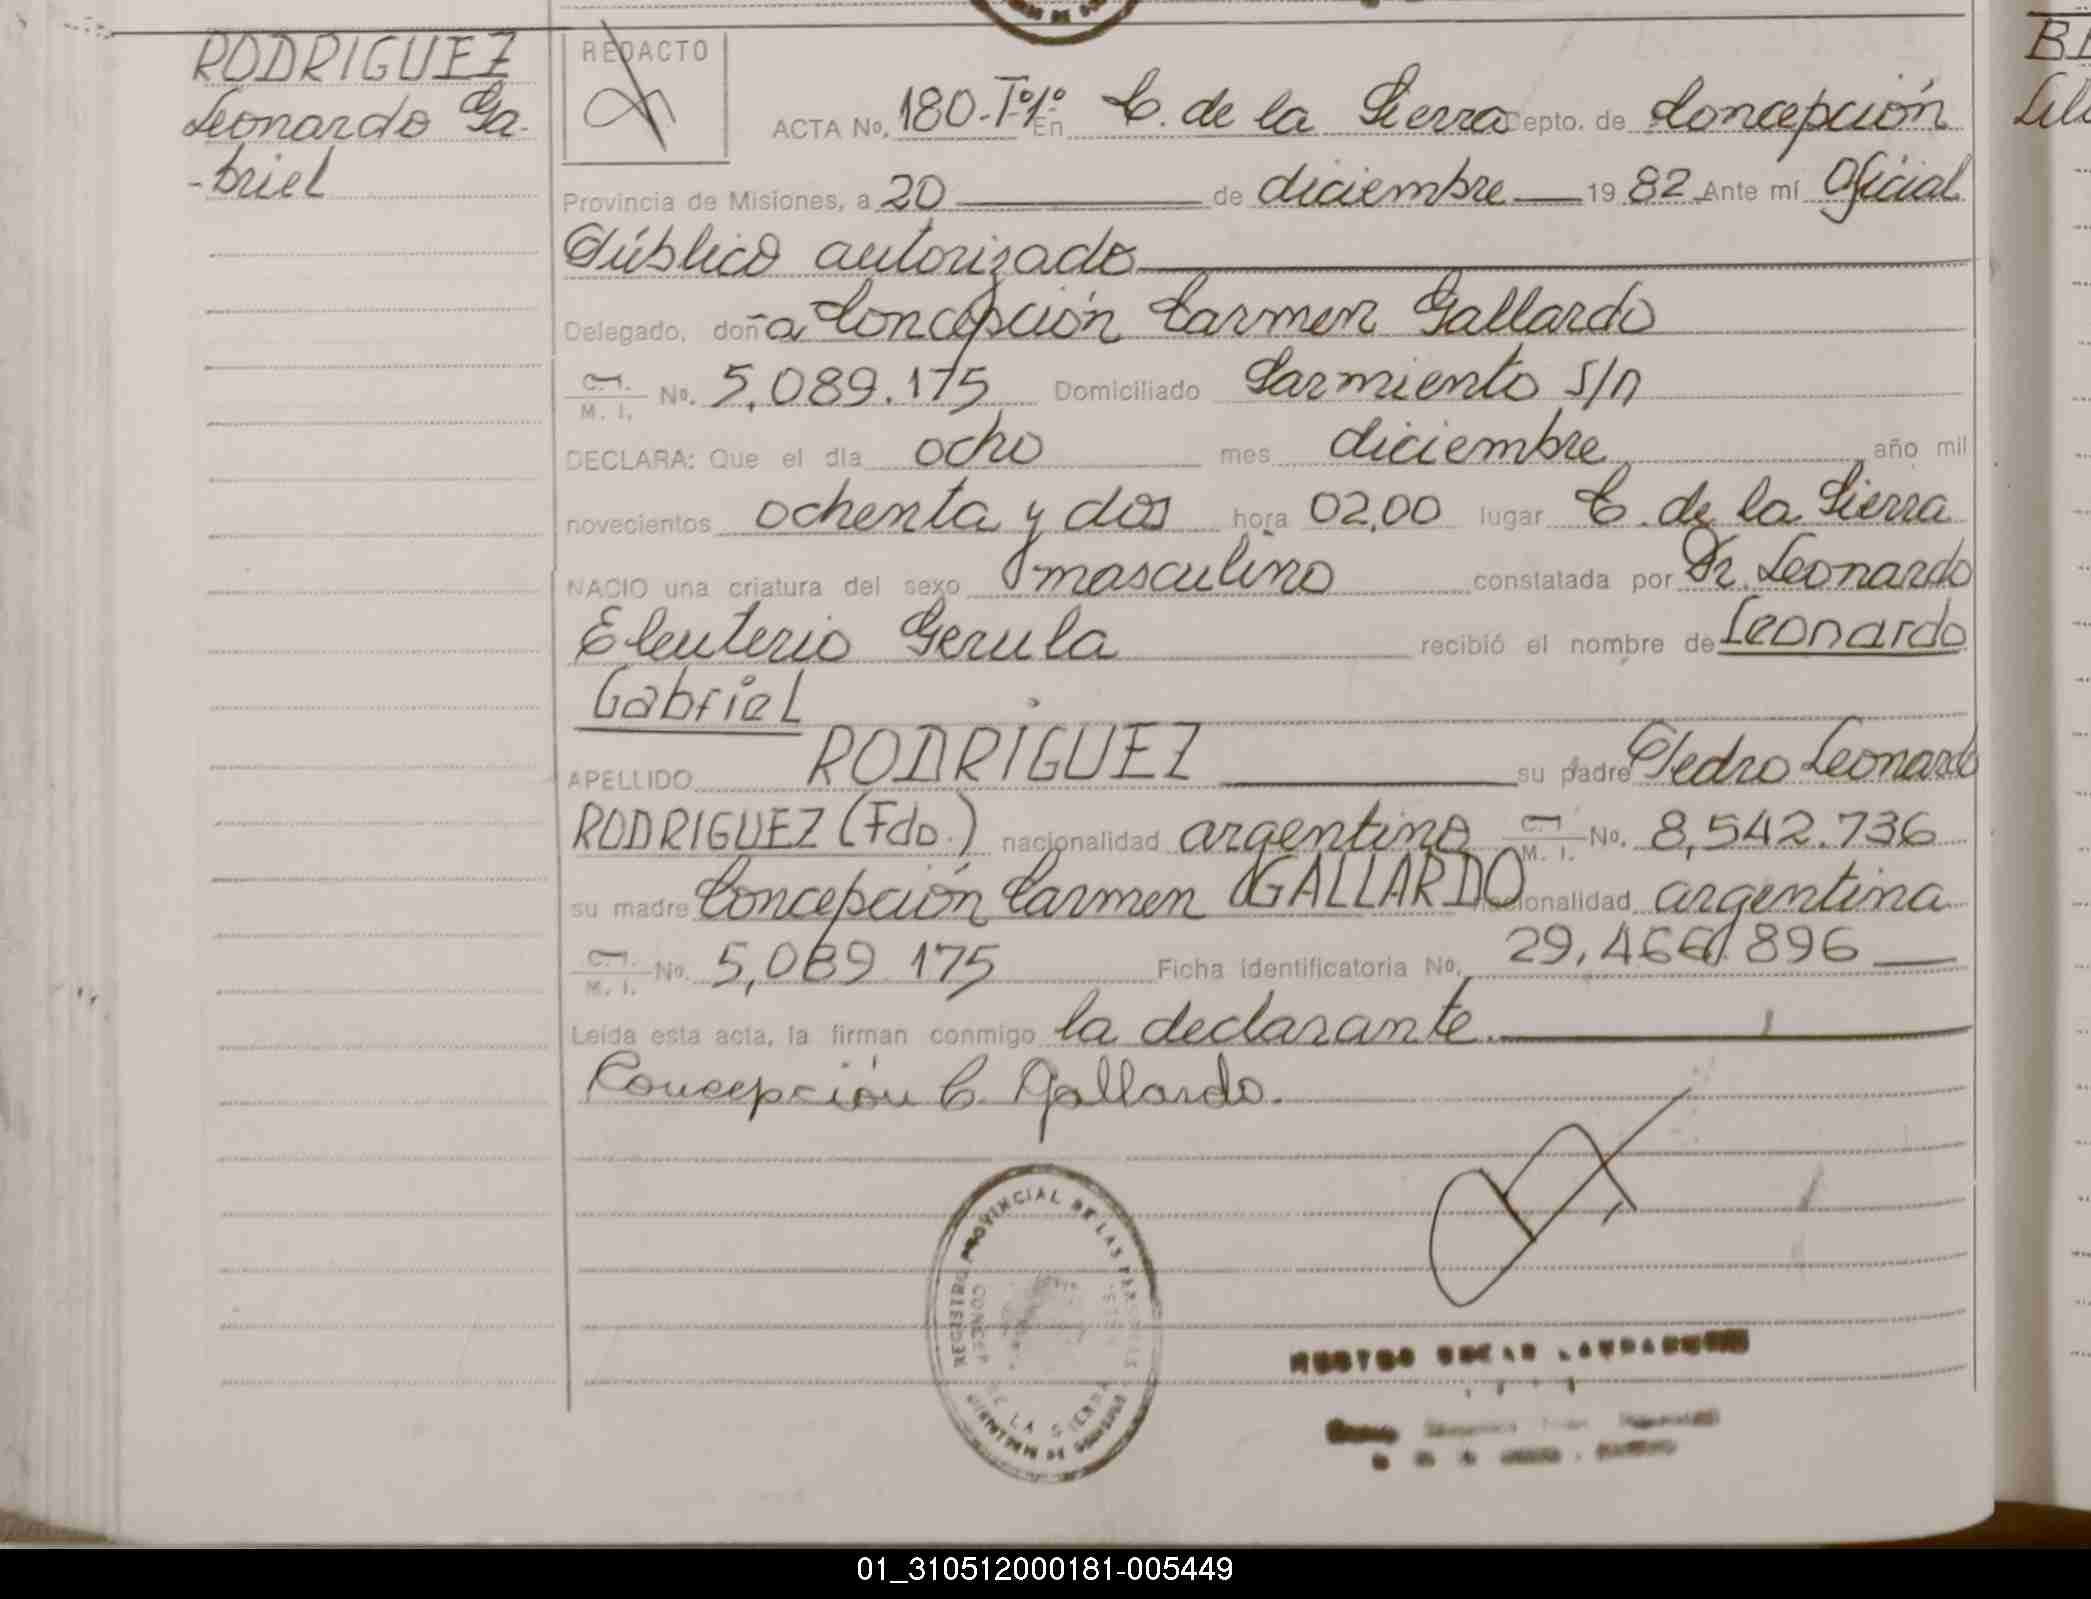 RODRIGUEZ
Leonardo Ga-
-briel
REDACTO
ACTA No. 180-Tº1º En C. de la Sierra Depto. de Concepción
Provincia de Misiones, a 20 de diciembre 19 82 Ante mí Oficial
Público autorizado
Delegado, doña Concepción Carmen Gallardo
C.I. M. I. No. 5,089.175 Domiciliado Sarmiento s/n
DECLARA: Que el día ocho mes diciembre año mil
novecientos ochenta y dos hora 02,00 lugar C. de la Sierra
NACIO una criatura del sexo masculino constatada por Dr. Leonardo
Eleuterio Gerula recibió el nombre de Leonardo
Gabriel
APELLIDO RODRIGUEZ su padre Pedro Leonardo
RODRIGUEZ (Fdo.) nacionalidad argentino C.I. M. I. No. 8,542.736
su madre Concepción Carmen GALLARDO nacionalidad argentina
C.I. M. I. No. 5,089 175 Ficha identificatoria No. 29,466.896
Leída esta acta, la firman conmigo la declarante.
Concepción C. Gallardo.
REGISTRO PROVINCIAL DE LAS PERSONAS
CONCEP DE LA SIERRA
01_310512000181-005449